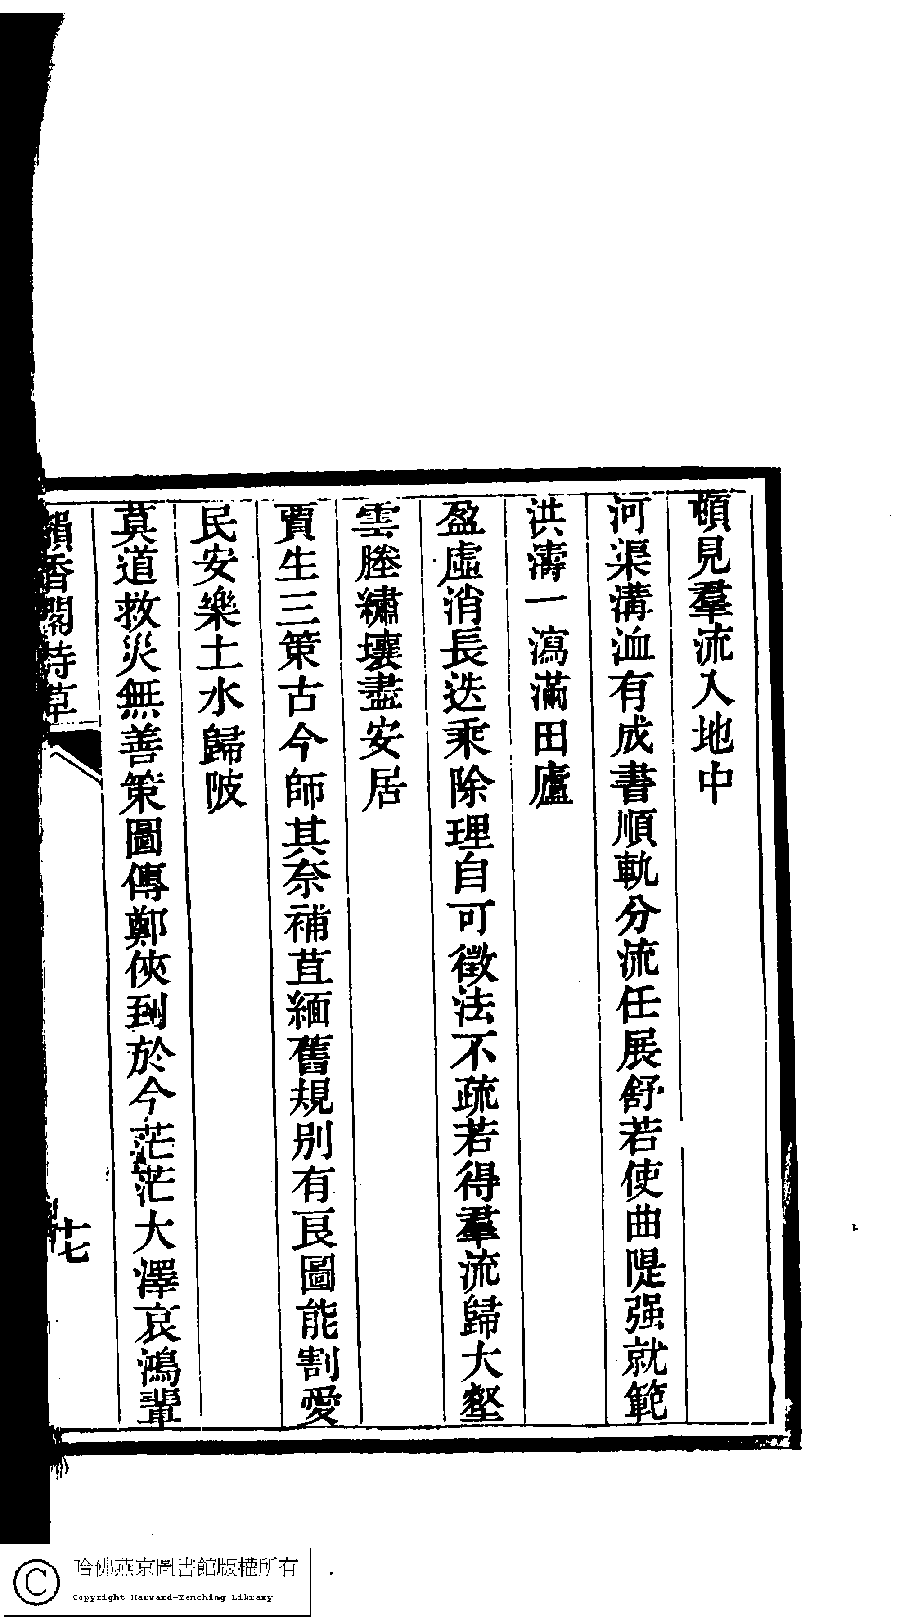 頓見羣流入地中
河渠溝洫有成書順軌分流任展舒若使曲隄强就範
洪濤一瀉滿田廬
盈虛消長迭乘除理自可徵法不疏若得羣流歸大壑
雲塍繡壤盡安居
賈生三策古今師其奈補苴緬舊規别有良圖能割愛
民安樂土水歸陂
莫道救災無善策圖傳鄭俠到於今茫茫大澤哀鴻輩
韻香閣詩草
十七
哈佛燕京圖書館版權所有
Copyright Harvard-Yenching Library